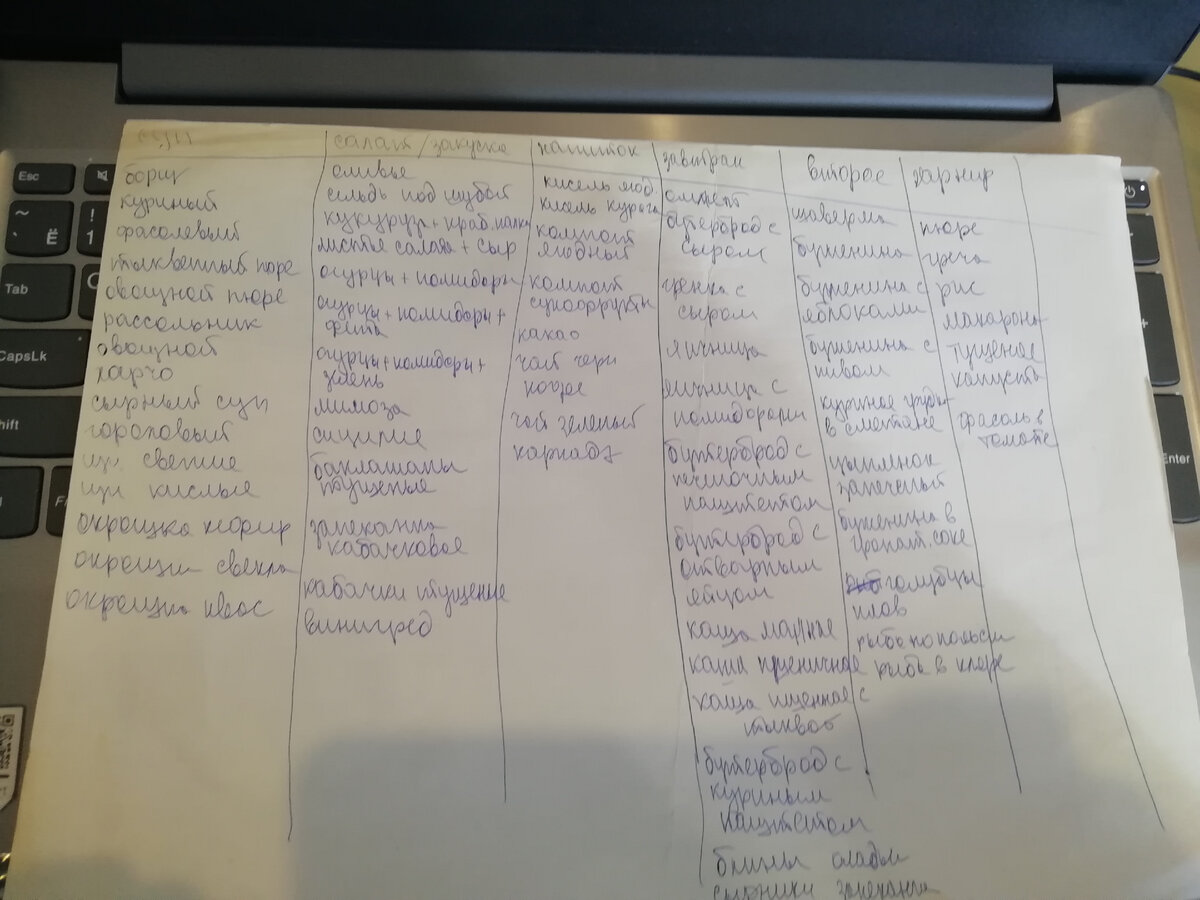 суп
борщ
куриный
фасолевый
тыквенный пюре
овощной пюре
рассольник
овощной
харчо
сырный суп
гороховый
щи свежие
щи кислые
окрошка кефир
окрошка свекла
окрошка квас
салат/закуска
оливье
сельдь под шубой
кукуруза + краб.палки
листья салата + сыр
огурцы + помидоры
огурцы + помидоры +
фета
огурцы + помидоры +
зелень
мимоза
сицилие
баклашаны
тушеные
запеканка
кабачковое
кабачки тушение
винигред
напиток
кисель яод
кисель курага
компот
ягодный
компот
сухофрукты
какао
чай черн
кофе
чай зеленый
каркадэ
завтраки
омлет
бутерброд с
сыром
гренка с
сыром
яичница
яичница с
помидорами
бутерброд с
печеночным
паштетом
бутерброд с
отварным
яйцом
каша манные
каша пшеничное
каша пшенное с
тыквой
бутерброд с
куриным
паштетом
блины оладьи
сырники запеканка
второе
шаверма
буженина
буженина с
яблоками
буженина с
пивом
куриное грудь
в сметане
цыпленок
запеченый
буженина в
гранат. соке
голубцы
плов
рыба по польски
рыба в кляре
гарнир
пюре
греча
рис
макароны
тушеное
капуста
фасоль в
томате
Esc
Ё
!
1
Tab
CapsLk
hift
Enter